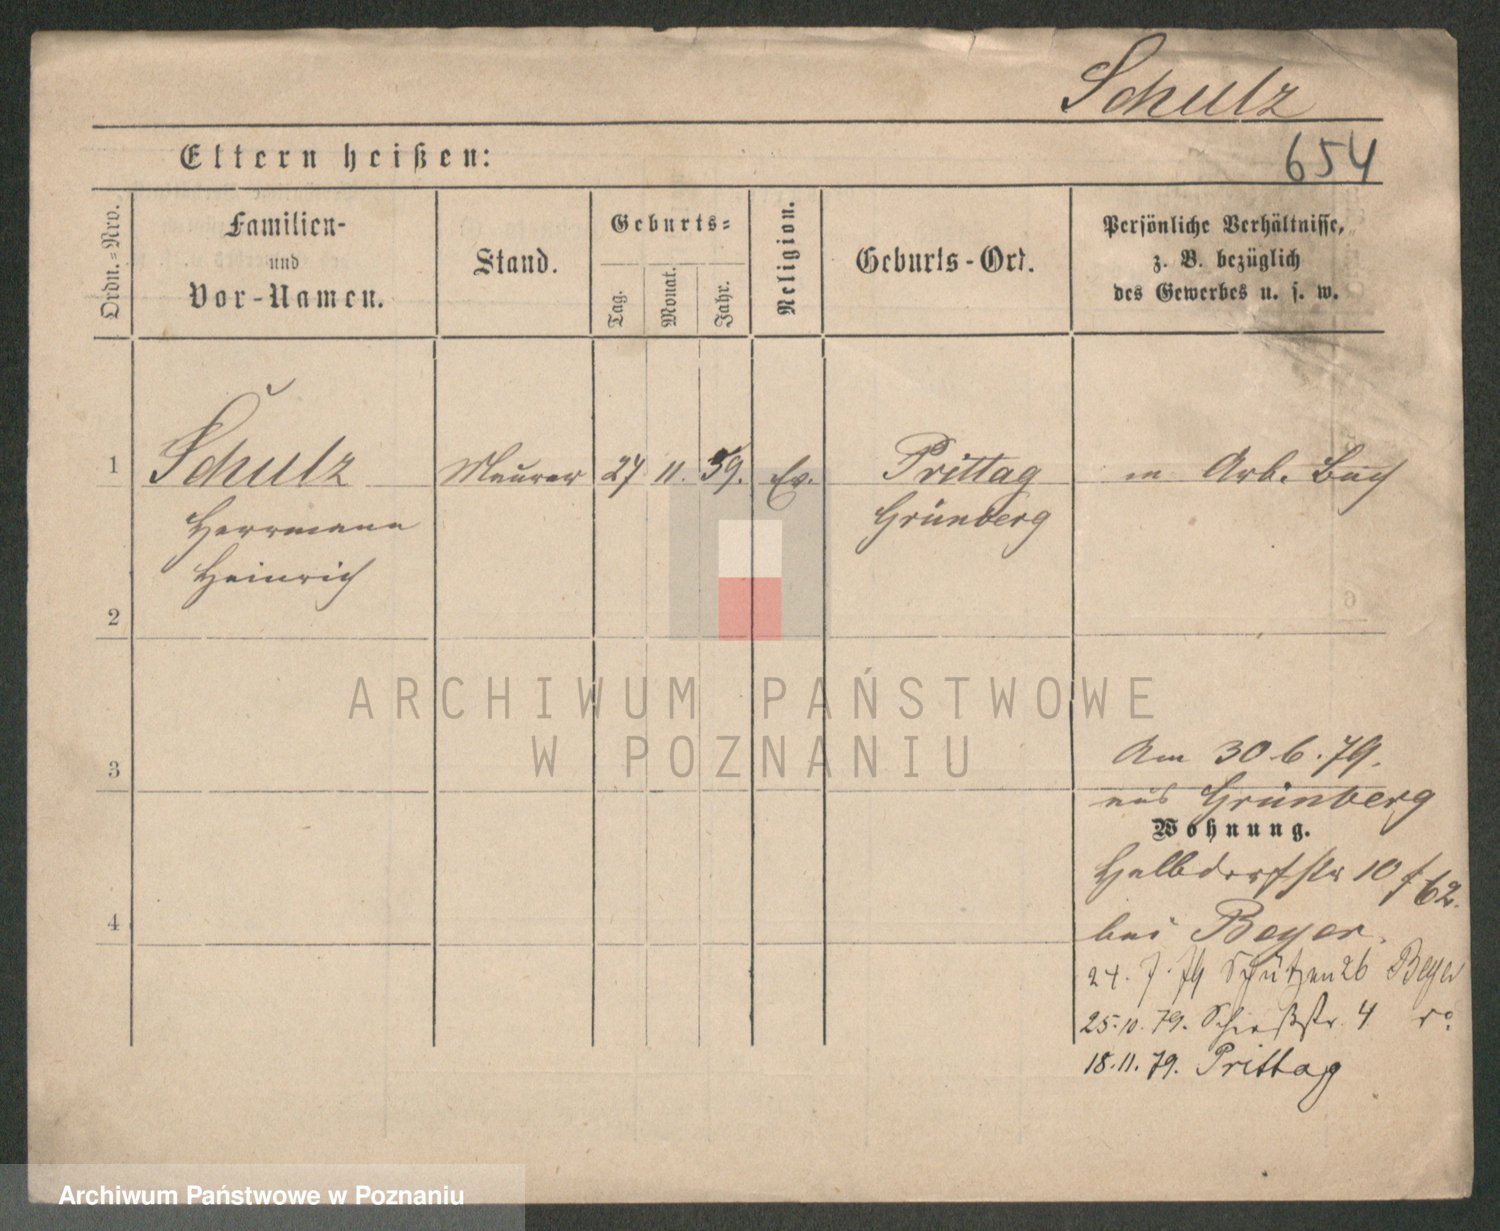 Schulz
Eltern heißen:
654
Ordn.-Nro.
Familien-
und
Vor-Namen.
Stand.
Geburts-
Tag.
Monat.
Jahr.
Religion.
Geburts-Ort.
Persönliche Verhältnisse,
z. B. bezüglich
des Gewerbes u. s. w.
1
Schulz Maurer 27 11. 59. Ev. Prittag Arb. Buch
Herrmann Grünberg
Heinrich
2
ARCHIWUM PAŃSTWOWE
W POZNANIU
3
Am 30.6.79.
aus Grünberg
Wohnung.
Halbdorfstr 10 62.
4
bei Beyer.
24. 7. 79 Schützen 26 Beyer
25.10.79. Schießstr. 4
18.11.79. Prittag
Archiwum Państwowe w Poznaniu